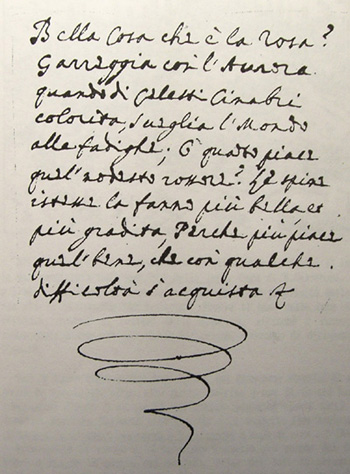 Bella Cosa che è la rosa?
Garreggia con l'Aurora
quando di Celesti Cinabri
colorita, sueglia l'Mondo
alle fadighe; O quanto piace
quel modesto rossore? Le spine
istesse la fanno più bella, et
più gradita, Perche più piace
quel bene, che con qualche
difficoltà s'acquista